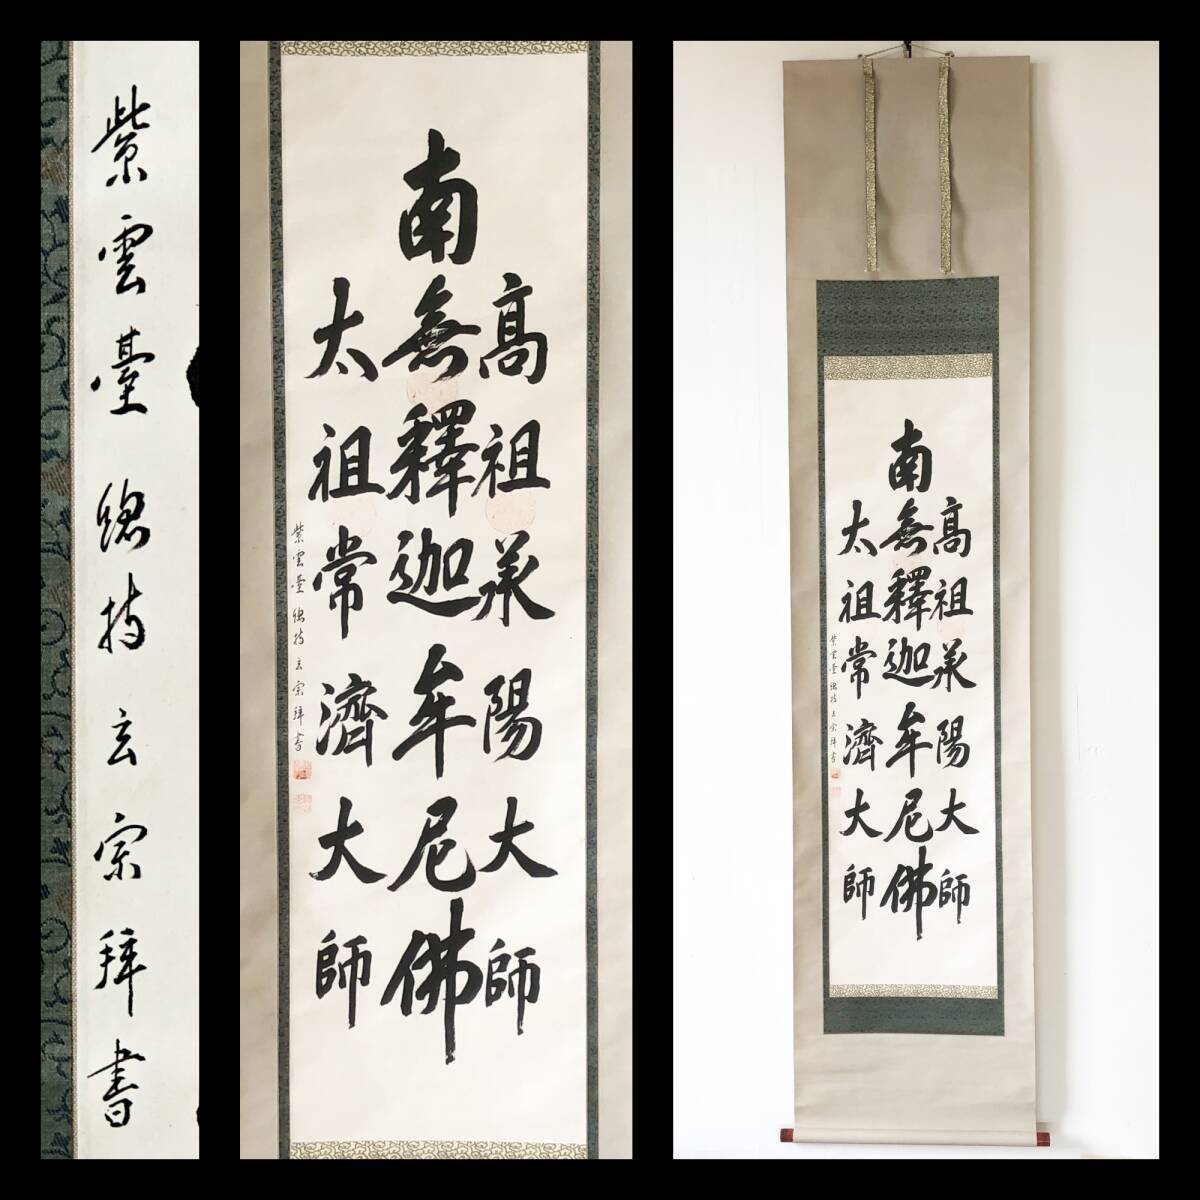 紫雲臺總持玄宗拜書
高祖承陽大師
南無釋迦牟尼佛
太祖常濟大師
紫雲臺總持玄宗拜書
高祖承陽大師
南無釋迦牟尼佛
太祖常濟大師
紫雲臺總持玄宗拜書